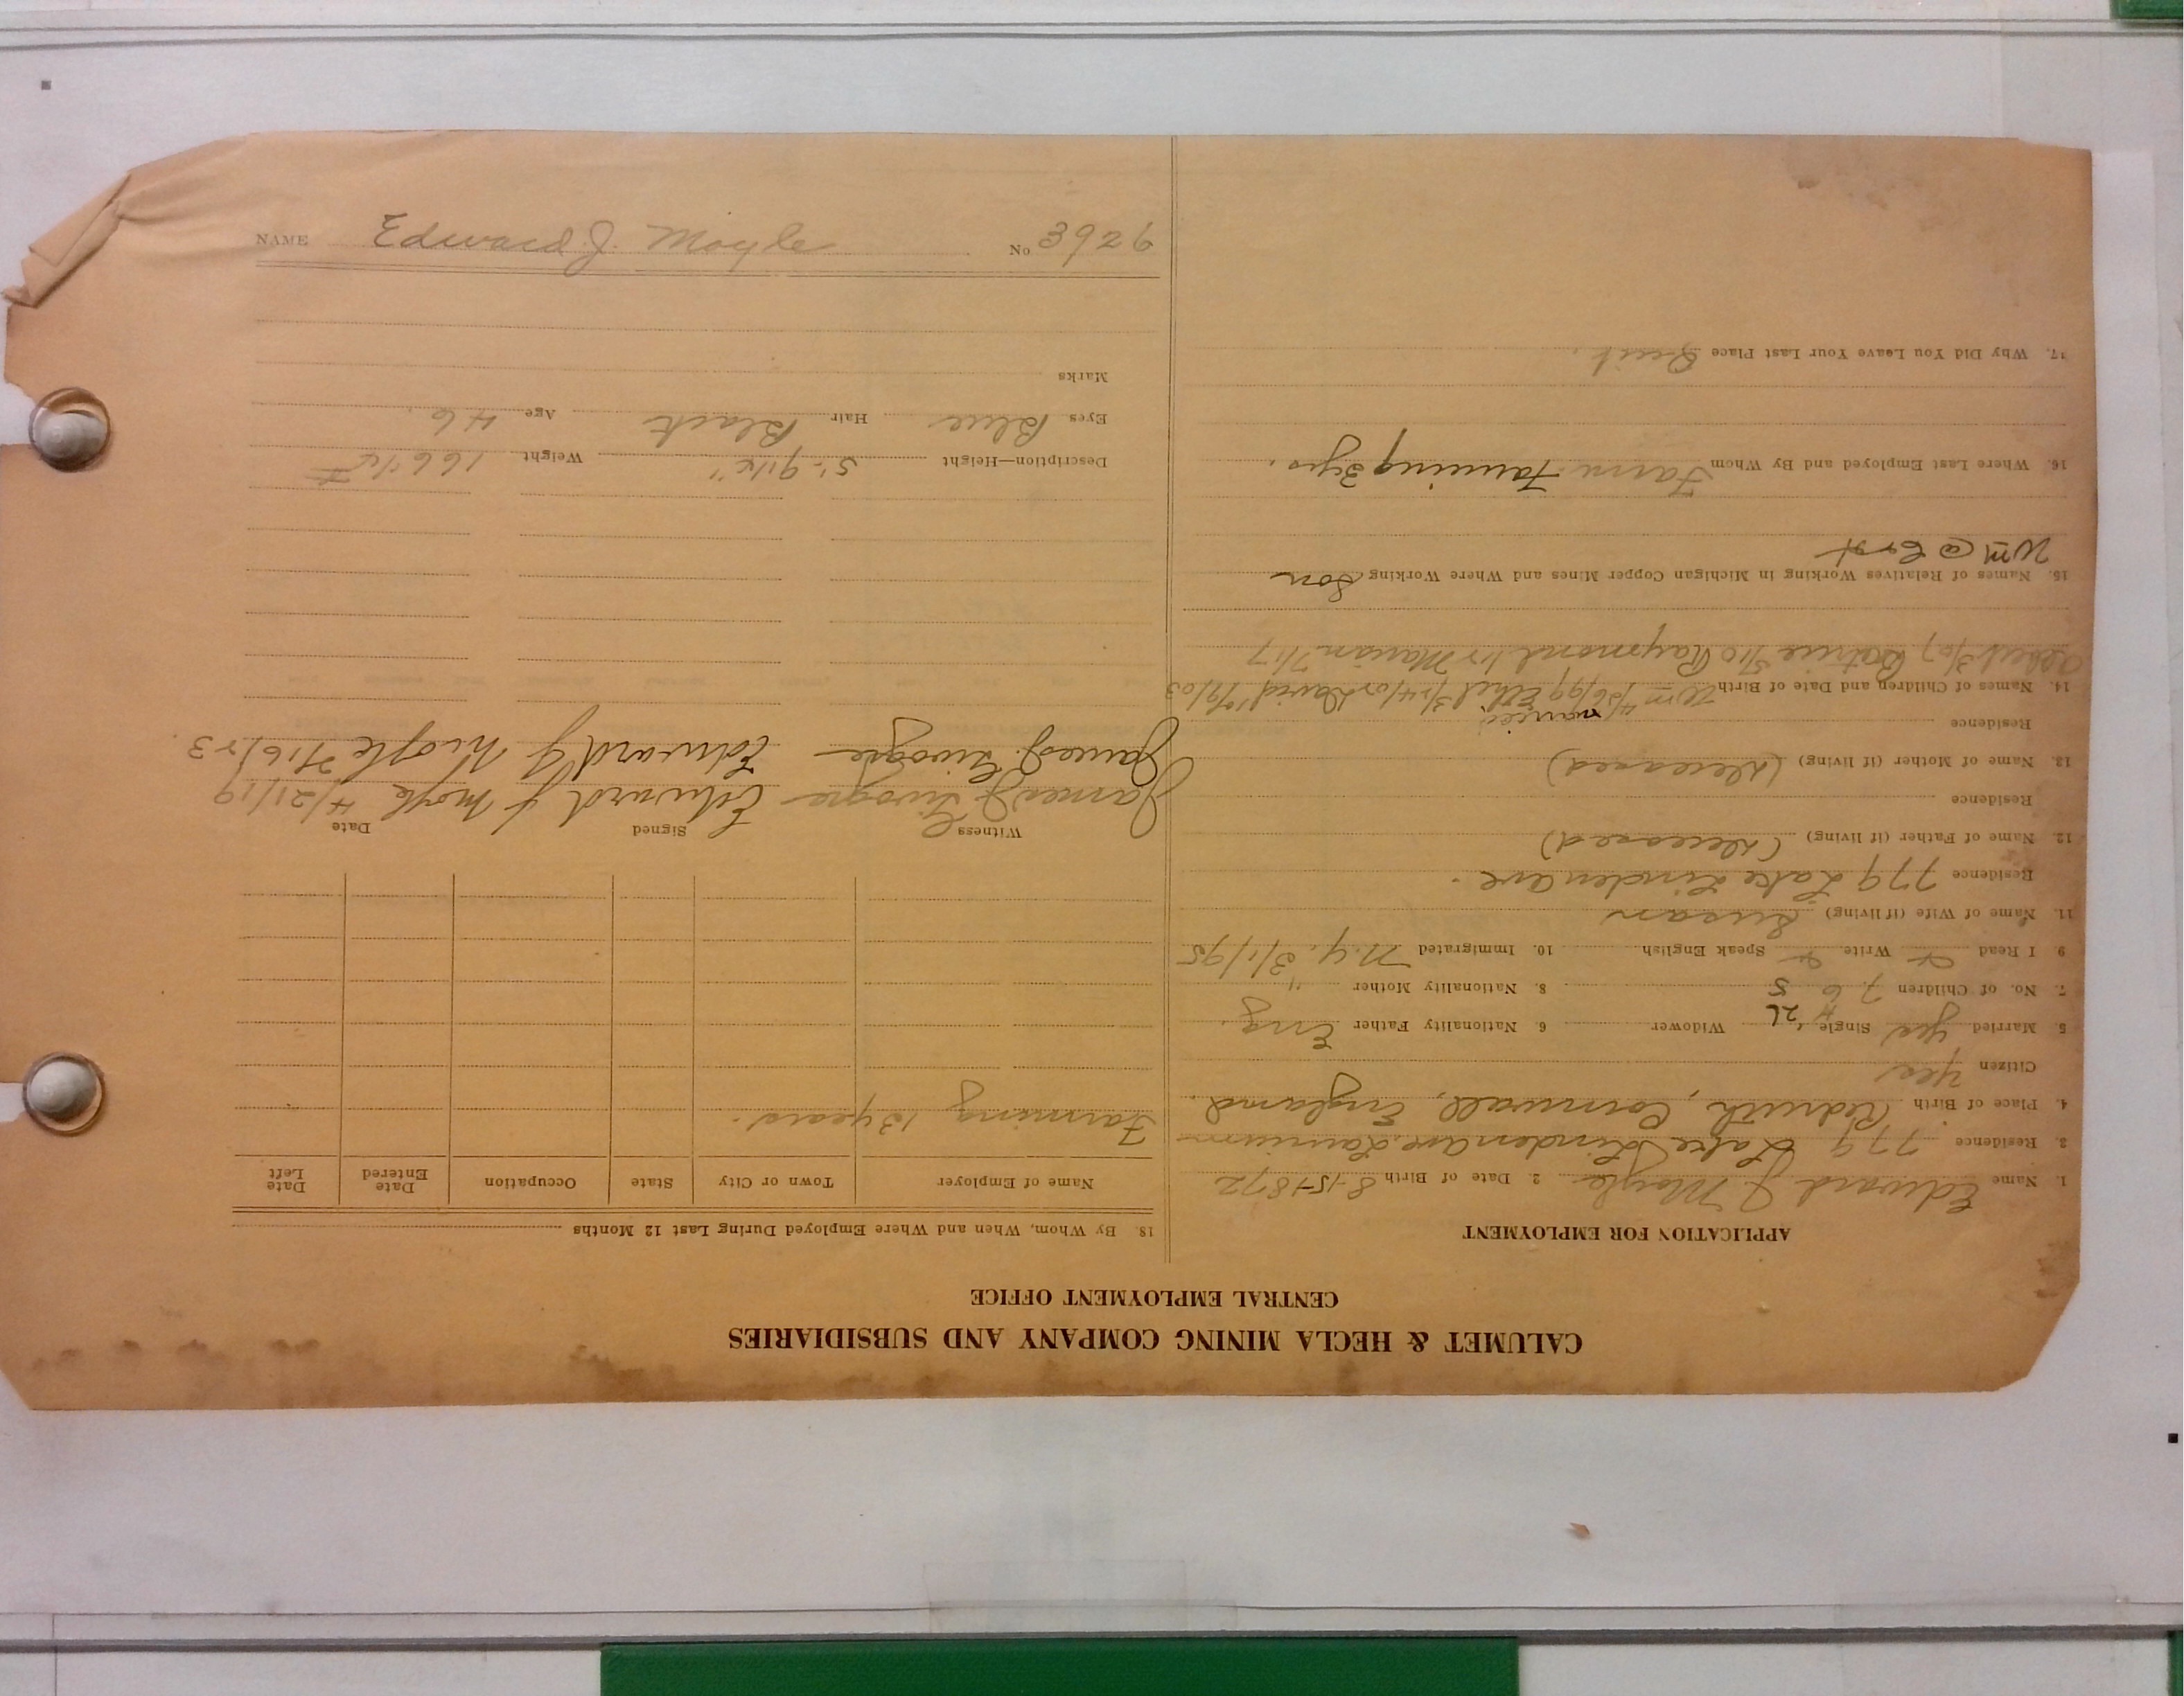 CALUMET & HECLA MINING COMPANY AND SUBSIDIARIES
CENTRAL EMPLOYMENT OFFICE
APPLICATION FOR EMPLOYMENT
1. Name Edward J. Moyle 2. Date of Birth 8-15-1872
3. Residence 779 Lake Linden Ave. Laurium
4. Place of Birth Redruth, Cornwall, England.
Citizen Yes
5. Married Yes Single Widower 6. Nationality Father Eng.
7. No. of Children 7. 6 5 8. Nationality Mother "
9 I Read Write Speak English 10. Immigrated N.Y. 3/1/95
11. Name of Wife (if living) Susan
Residence 779 Lake Linden Ave.
12. Name of Father (if living) (Deceased)
Residence
13. Name of Mother (if living) (Deceased)
Residence
married
14. Names of Children and Date of Birth Wm 4/26/99 Ethel 3/24/01 David 19/03
Albert 3/07 Raymond Marian 7/17
15. Names of Relatives Working in Michigan Copper Mines and Where Working Son
Wm @
16. Where Last Employed and By Whom Farm Farming 3 yrs.
17. Why Did You Leave Your Last Place Quit.
18. By Whom, When and Where Employed During Last 12 Months
Name of Employer Town or City State Occupation Date Entered Date Left
Farming 13 years.
Witness Signed Date
James J. Edward J Moyle 4/21/19
James J. Edward J Moyle 7/16/23
Description—Height 5'-9 1/2" Weight 166 1/2 #
Eyes Blue Hair Black Age 46.
Marks
NAME Edward J. Moyle No 3926